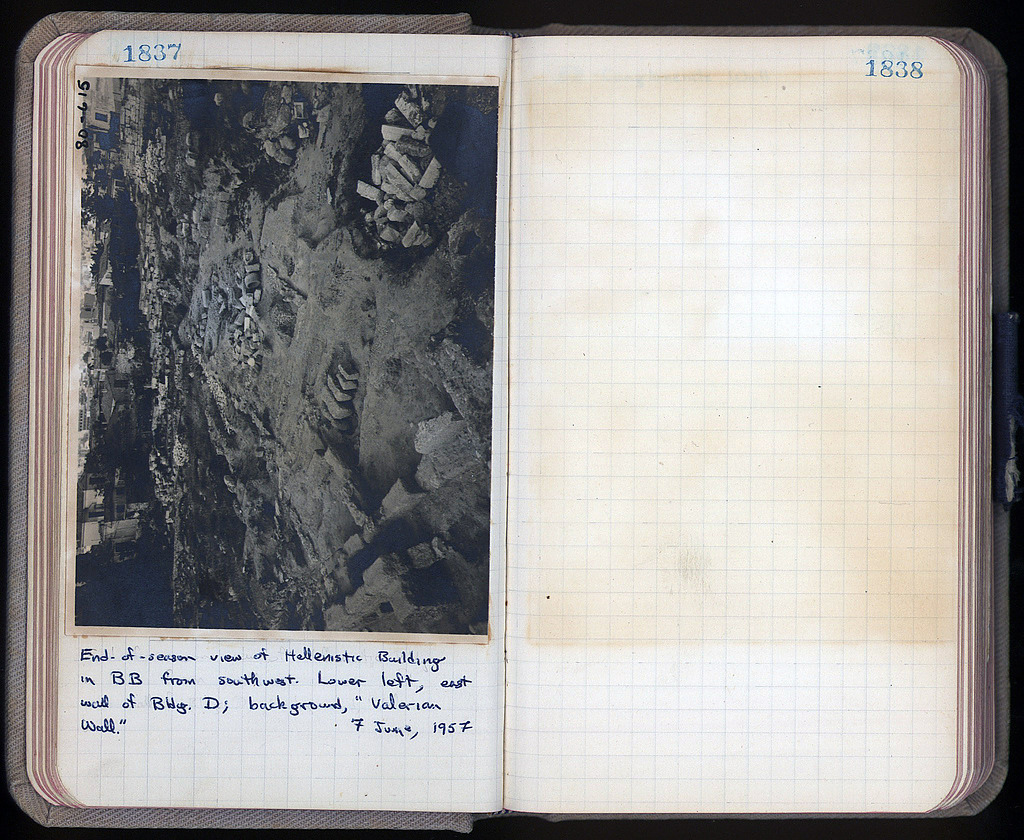 1837
80-6-15
End-of-season view of Hellenistic Building
in BB from southwest. Lower left, east
wall of Bldg. D; background, "Valerian
Wall." 7 June, 1957
1838